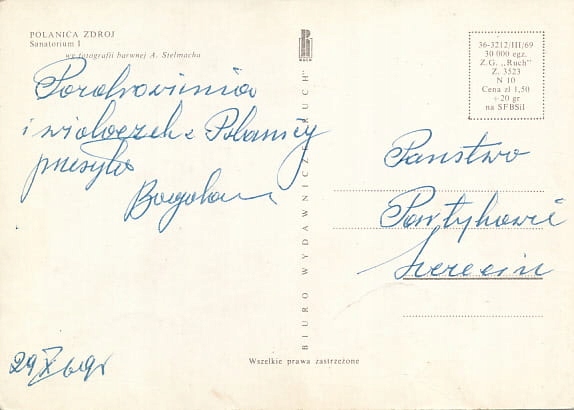 POLANICA ZDROJ
Sanatorium I
wg fotografii barwnej A. Stelmacha
Pozdrowienia
i widoczek z Polanicy
przesyła
Bogdan
29 X 69r
BIURO WYDAWNICZE „RUCH”
Wszelkie prawa zastrzeżone
36-3212/III/69
30 000 egz.
Z.G. „Ruch”
Z. 3523
N 10
Cena zł 1,50
+20 gr
na SFBSiI
Państwo
Partykowie
Szczecin